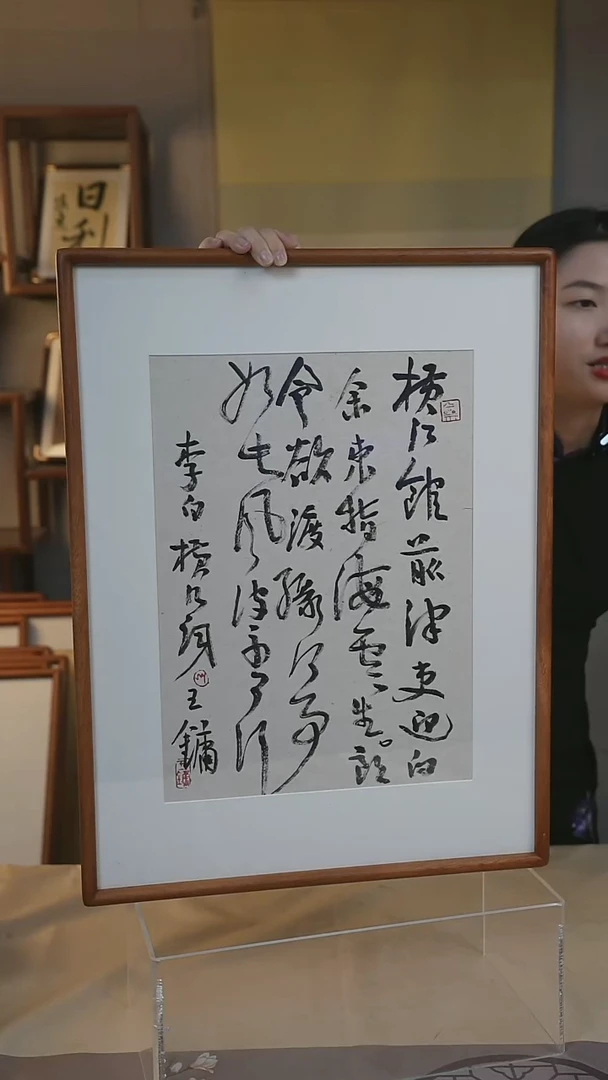 橫江館前津吏迎向
余東指海雲生郎
今欲渡緣何事
如此風波不可行
李白橫江詞 王鏞
日利